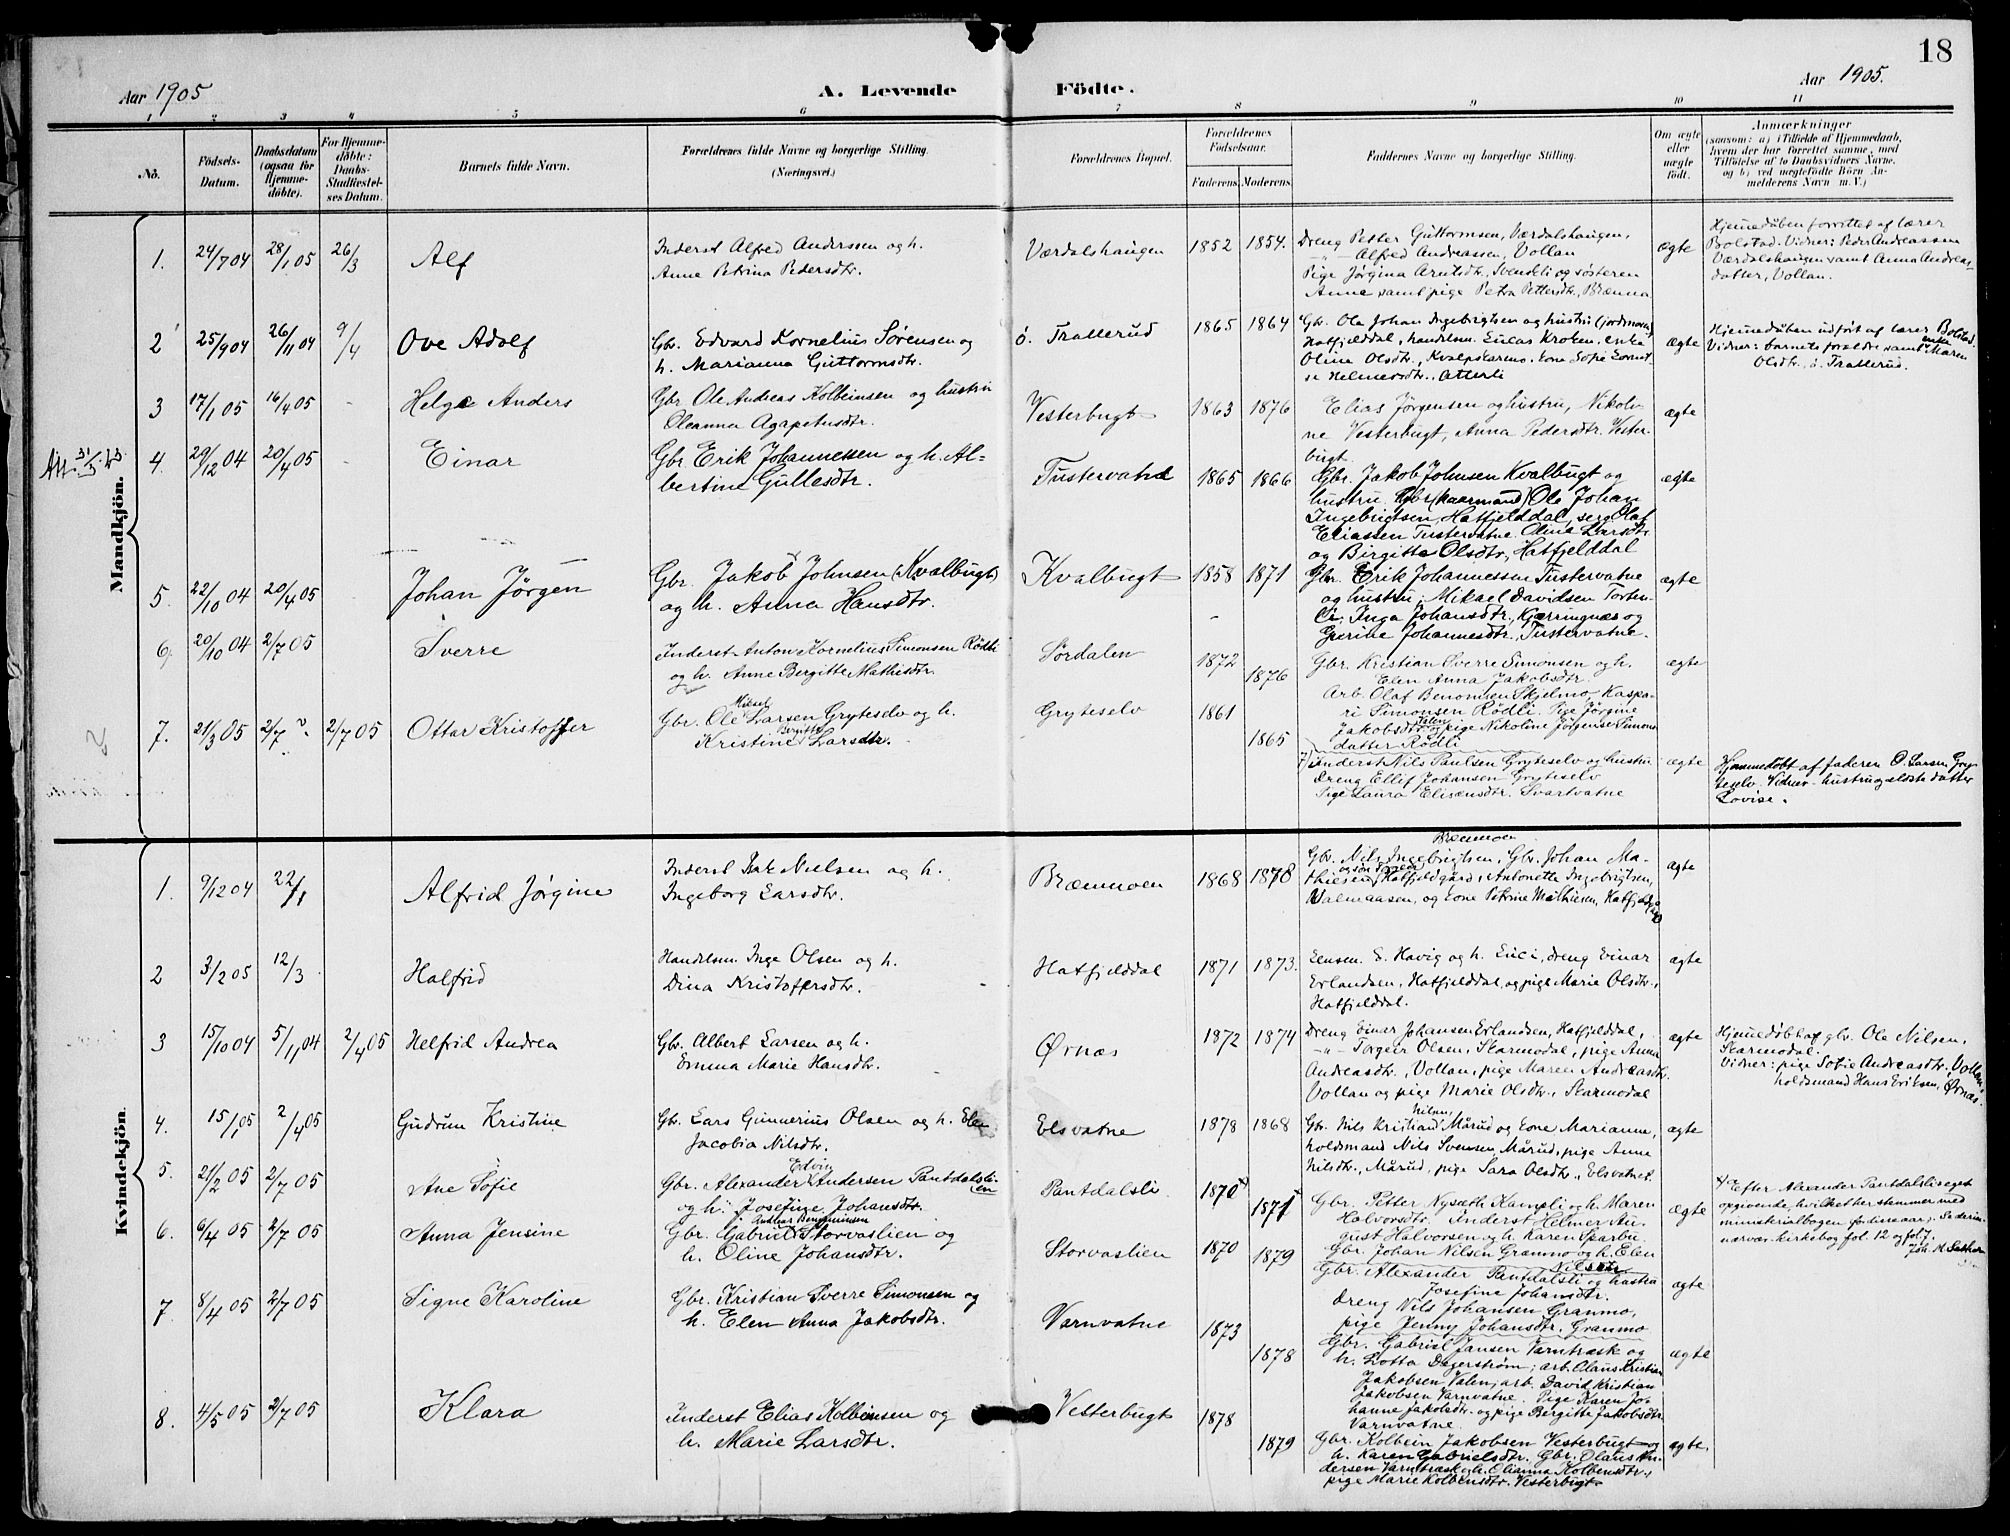 18
Aar 1905
A. Levende
Födte.
Aar 1905.
1 2 3 4 5 6 7 8 9 10 11
No.
Födsels-
Datum.
Daabsdatum
(ogsaa for
Hjemme-
döbte).
For Hjemme-
döbte:
Daabs-
Stadfæstel-
ses Datum.
Barnets fulde Navn.
Forældrenes fulde Navne og borgerlige Stilling.
(Næringsvei.)
Forældrenes Bopæl.
Forældrenes
Födselsaar.
Faderens Moderens
Faddernes Navne og borgerlige Stilling.
Om ægte
eller
uægte
födt.
Anmærkninger
(saasom: a) i Tilfælde af Hjemmedaab,
hvem der har forrettet samme, med
Tilföielse af to Daabsvidners Navne,
og b) ved uægtefödte Börn An-
melderens Navn m. V.)
Mandkjön.
1. 24/7 04 28/1 05 26/3 Alf
Inderst Alfred Anderssen og h.
Anne Petrina Pedersdtr.
Værdalshaugen 1852 1854.
Dreng Petter Guttormsen, Værdalshaugen,
-"- Alfred Andreassen, Vollan
Pige Jørgina Arntsdtr., Svendeli og søsteren
Anne samt pige Petra Pettersdtr., Brænna
ægte
Hjemmedåben forrettet af lærer
Bolstad. Vidner: Peder Andreassen
Værdalshaugen samt Anna Andreas-
datter, Vollan.
2 25/9 04 26/11 04 9/4 Ove Adolf
Gbr. Edvard Kornelius Sørensen og
h. Marianna Guttormsdtr.
ö. Trallerud 1865 1864
Gbr. Ole Johan Ingebrigtsen og hustru (jordmora)
Hatfjelddal, handelsm. Lulas Kroken, enke
Oline Olsdtr., Kvalpskarmo. Lone Sofie Lornt-
se Helmersdtr., Atterli
ægte
Hjemmedåben udført af lærer Bolstad.
Vidner: barnets forældre samt enke Maren
Olsdtr., ö. Trallerud.
3 17/1 05 16/4 05 - Helge Anders
Gbr Ole Andreas Kolbeinsen og hustru
Oleanna Agapetusdtr.
Vesterbugt 1863 1876
Elias Jørgensen og hustru, Nikoli-
ne Vesterbugt, Anna Pedersdtr. Vester-
bugt.
ægte
Att. 31/3 43.
4. 29/12 04 20/4 05 - Einar
Gbr Erik Johannessen og h. Al-
bertine Gullesdtr.
Tustervatne 1865 1866
Gbr. Jakob Johnsen Kvalbugt og
hustru. Gbr (kaarmand) Ole Johan
Ingebrigtsen, Hatfjelddal, serg. Olaf
Eliassen Tustervatne. Oline Larsdtr.
og Birgitte Olsdtr, Hatfjelddal
ægte
5. 22/10 04 20/4 05 Johan Jörgen
Gbr. Jakob Johnsen (Kvalbugt)
og h. Anna Hansdtr.
Kvalbugt 1858 1871
Gbr. Erik Johannessen Tustervatne
og hustru; Mikael Davidsen Torten-
li; Inga Johansdtr., Kjærringnæs og
Gurine Johannesdtr., Tustervatne.
ægte
6. 20/10 04 2/7 05 Sverre
Inderst Anton Kornelius Simonsen Rödli
og h. Anne Bergitte Mathisdtr.
Sørdalen 1872 1876
Gbr. Kristian Sverre Simonsen og h.
Elen Anna Jakobsdtr.
Arb. Olaf Benonisen Skjelmo, Kaspa-
ri Simonsen Rödli. Pige Jörgine
Jakobsdtr. Valen, og pige Nikoline Jörgense Simons-
datter Rödli
ægte
7. 21/3 05 2/7 2/7 05 Ottar Kristoffer
Gbr. Ole Larsen Gryteselv og h.
Kristine Bergitte Larsdtr.
Gryteselv 1861 1865
7) Inderst Nils Paulsen Gryteselv og hustru
Dreng Ellif Johansen Gryteselv
Pige Laura Elisænsdtr. Svartvatne
ægte
Hjemmedöbt af faderen O. Larsen Gry-
teselv. Vidner - hustru og eldste datter
Lovise.
Kvindekjön.
1. 9/12 04 22/1 Alfrid Jörgine
Inderst Nielsen og h.
Ingeborg Larsdtr.
Bræmmoen 1868 1878
Bræmmoen
Gbr. Nils Ingebrigtsen, Gbr. Johan Ma-
thiesen Hatfjeldgård, Antonette Ingebrigtsen,
Valmaasen, og Lone Petrine Mathiesen, Hatfjeldgård
ægte
2 3/2 05 12/3. Halfrid
Handelsm. Inge Olsen og h.
Dina Kristoffersdtr.
Hatfjelddal 1871 1873.
Lensm. E. Havig og h. Luci, dreng Einar
Erlandsen, Hatfjelddal, og pige Marie Olsdtr.,
Hatfjelddal.
ægte
3 15/10 04 5/11 04 2/4 05 Helfrid Andrea
Gbr. Albert Larsen og h.
Emma Marie Hansdtr.
Ørnæs 1872 1874
Dreng Einar Johansen Erlandsen, Hatfjelddal,
-"- Torgeir Olsen, Skarmodal, pige Anna
Andreasdtr., Vollan, pige Maren Andreasdtr.
Vollan og pige Marie Olsdtr., Skarmodal
ægte
Hjemmedøbt af gbr. Ole Nilsen,
Skarmodal.
Vidner: pige Sofie Andreasdtr., Vollan,
holdsmand Hans Eriksen, Ørnæs.
4. 15/1 05 2/4 05 Gudrun Kristine
Gbr. Lars Gunnerius Olsen og h. Elen
Jacobia Nilsdtr.
Elsvatne 1878 1868
Gbr. Nils Kristian Nilsen, Mårud og Lone Marianne,
holdsmand Nils Svensen, Mårud, pige Anne
Nilsdtr., Mårud, pige Sara Olsdtr., Elsvatnet.
ægte
5. 21/2 05 2/7 05 Ane Sofie
Gbr. Alexander Edvin Andersen Pantdalsli-
en
og h. Josefine Johansdtr.
Pantdalsli 1870 x 1871 x
Gbr. Petter Nysæth Kampli og h. Maren
Halvorsdtr. Inderst Helmer Au-
gust Halvorsen og h. Karen Sparbu.
Gbr. Johan Nilsen Granmo og h. Elen
Nilsdtr
ægte
x/ Efter Alexander Pantdalsliens eget
opgivende, hvilket her stemmer med
ministerialbogen for disse aar;
nærvær. kirkebog fol. 12 og fol 7.
6. 6/4 05 2/7 05 Anna Jensine
Gbr. Gabriel Storvaslien og
h. Oline Johansdtr.
Storvaslien 1870 1879
Gbr. Alexander Pantdalsli og hustru
Josefine Johansdtr.
Dreng Nils Johansen Granmo,
pige Jenny Johansdtr. Granmo
ægte
7. 8/4 05 2/7 05 Signe Karoline
Gbr. Kristian Sverre Simonsen og
h. Elen Anna Jakobsdtr.
Varnvatne 1873 1878
Gbr. Gabriel Jansen Varntræsk og
h. Lotta Dagerström; arb. Claus Kristian
Jakobsen Valen; arb. David Kristian
Jakobsen Varnvatne. Pige Karen Jo-
hanne Jakobsdtr. og pige Bergitte Jakobsdtr.
Varnvatne
ægte
8. 4/5 05 2/7 05 Klara
Inderst Elias Kolbeinsen og
h. Marie Larsdtr.
Vesterbugt 1878 1879
Gbr. Kolbein Jakobsen Vesterbugt og
h. Karen Gabrielsdtr. Gbr. Olaus An-
dersen Varntræsk og h. Olianna Kolbensdtr.,
pige Marie Kolbensdtr. Vesterbugt
ægte